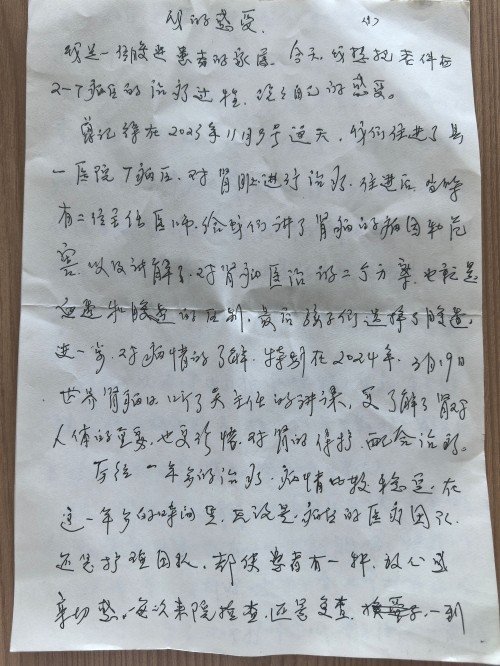 我的感受 (1)
我是一位腹透患者的家属。今天，我想把老伴在
2-7病区的治疗过程，谈谈自己的感受。
曾记得在2023年11月9号这天，我们住进了县
一医院7病区，对肾脏进行治疗。住进后，
有二位主任医师，给我们讲了肾病的病因和危
害，以及讲解了对肾病医治的二个方案，也就是
血透和腹透的区别，最后孩子们选择了腹透，
进一步对病情的了解。特别在2024年，3月19日
世界肾病日，听了吴主任的讲课，更了解了肾对
人体的重要，也更珍惜对肾的保护，配合治疗。
历经一年多的治疗，病情比较稳定，在
这一年多的时间里，无论是病区的医疗团队，
还是护理团队，都使患者有一种，放心感
亲切感。每次来院检查，还是复查，一到